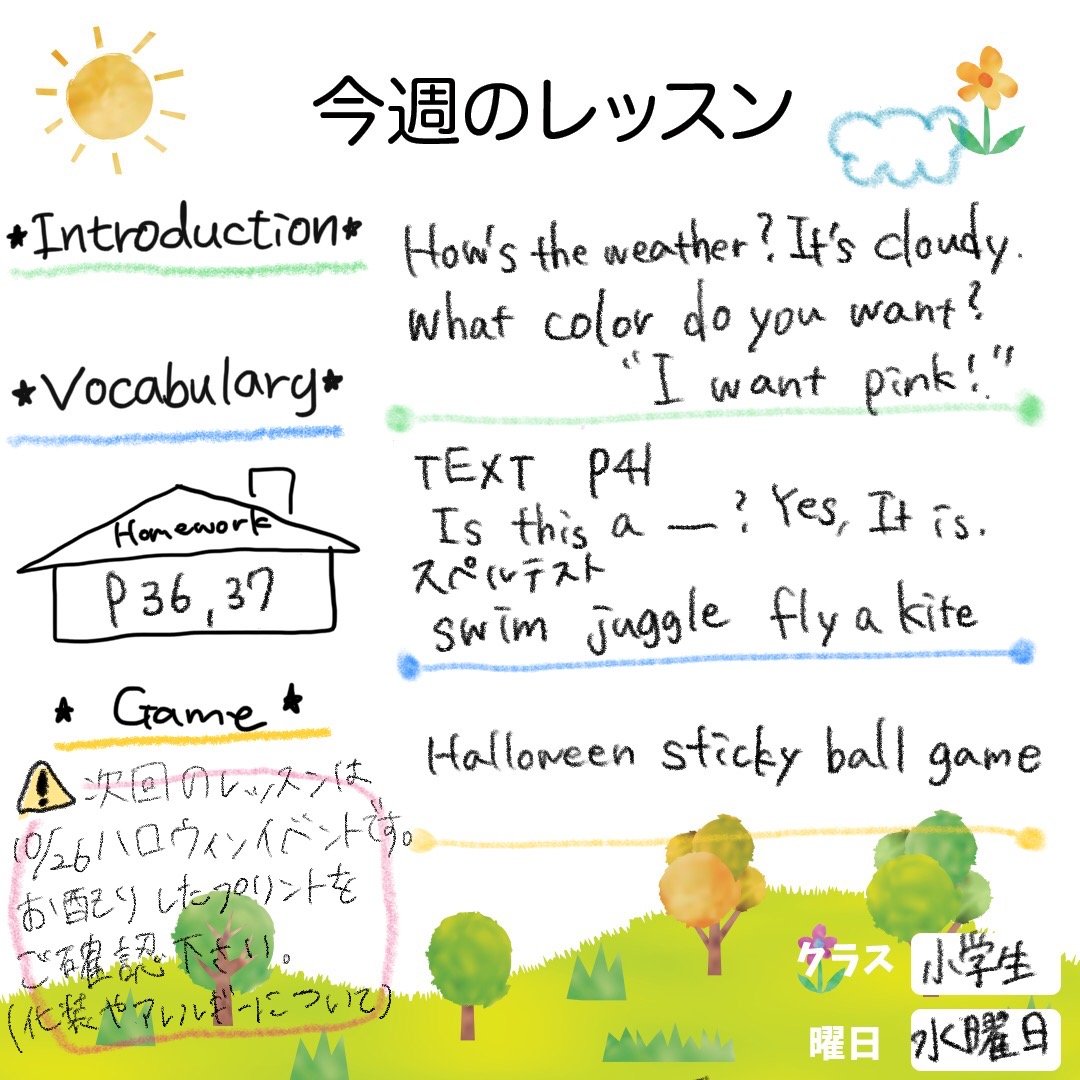 今週のレッスン
*Introduction*
How's the weather? It's cloudy.
What color do you want?
"I want pink!"
*Vocabulary*
TEXT P41
Is this a __? Yes, It is.
スペルテスト
swim juggle fly a kite
Homework
P36,37
* Game *
Halloween sticky ball game
次回のレッスンは
10/26ハロウィンイベントです。
お配りしたプリントを
ご確認下さい。
(化装やアレルギーについて)
クラス 小学生
曜日 水曜日